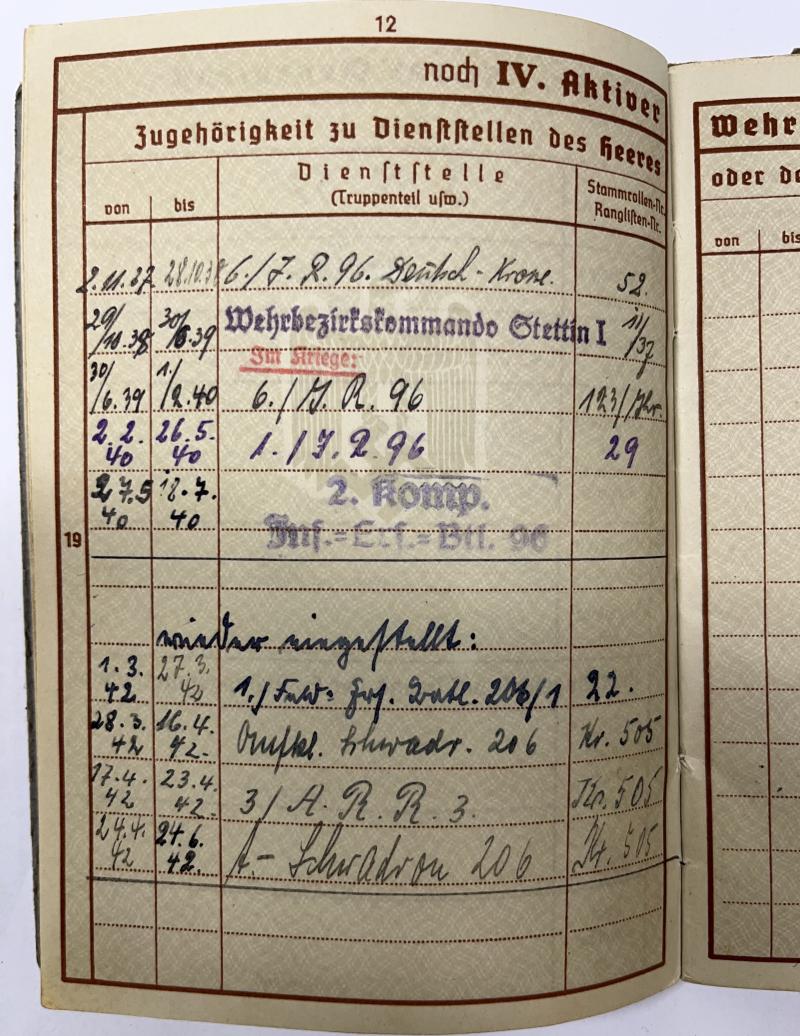 12
noch IV. Aktiver
Zugehörigkeit zu Dienststellen des Heeres
von bis Dienststelle (Truppenteil usw.) Stammrollen-Nr. Ranglisten-Nr.
2.11.37 28.10.38 6./J.R.96. Deutsch-Krone. 52.
29/10.38 30/6.39 Wehrbezirkskommando Stettin I 11/37
Im Kriege:
30/6.39 1/2.40 6./J.R. 96 123/
2.2.40 26.5.40 1./J.R.96 29
27.5.40 18.7.40 2. Komp. Inf.=Ers.=Btl. 96
19
wieder eingestellt:
1.3.42 27.3.42 1./ Ers. Batl. 206/1 22.
28.3.42 16.4.42. Aufkl. Schwadr. 206 Kr. 505
17.4.42 23.4.42. 3/A.R.R.3. Kr. 505
24.4.42 24.6.42. A.-Schwadron 206 Kr. 505
Wehr
oder de
von bis